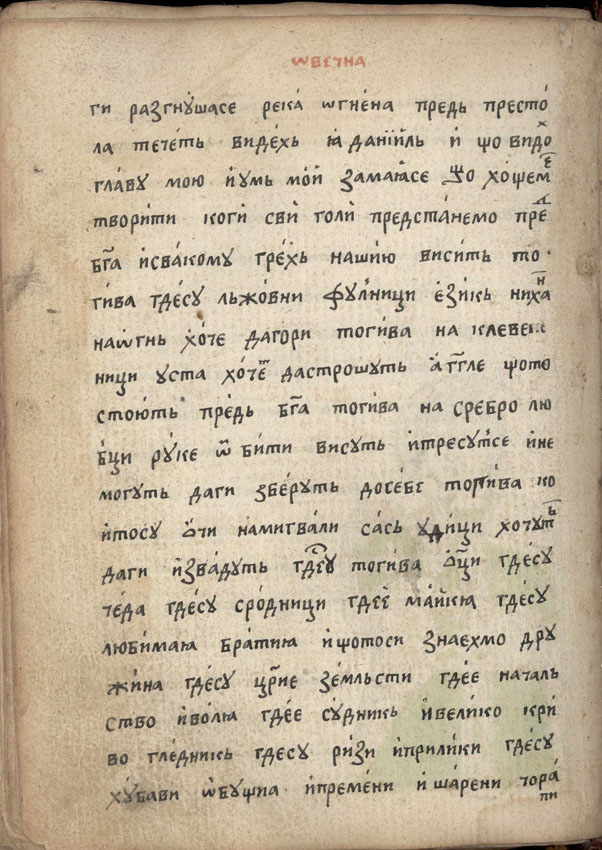 ѡвєтна
ги разгнꙋшасе река́ ѡгне́на предь престо́
ла тече́ть виде́хь ꙗ данїи́ль и́ що видо́х
гла́ву мою и́умь мо́й замаꙗ́се що хо́щемъ
твори́ти коги́ сви́ голи́ предста́немо пре́д
бг҃а и́свакому гре́хь наши́ю висить то
ги́ва где́су льжо́вни фу́лници е́зикь ниха́н
наѡ́гнь хо́че даго́ри тоги́ва на клеве
ници уста́ хо́чет дастрошуть а́гг҃ле щото
стою́ть пре́дь бг҃а тоги́ва на сребро лю
бци ру́ке ѿ би́ти висуть и́тресутсе и́не
могуть даги збе́руть досебе тоги́ва ко
и́тосу о́чи намигва́ли сась у́дици хотуть
даги и́зва́дуть где́су тоги́ва ѻ҆ци где́су
че́да где́су сро́дници где́е ма́йкꙗ где́су
люби́маꙗ бра́тиꙗ и́щотоси знаехмо дру
жи́на где́су цр҃ие зе́мльсти где́е началь
ство и́во́лꙗ где́е су́дникь и́велико кри́
во гле́дникь где́су ри́зи и́прили́ки где́су
ху́бави ѡ́бущиа и́преме́ни и́ ша́рени чора́
пи